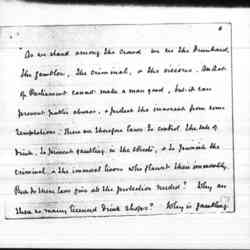 "As we stand among the crowd we see the Drunkard,
the gambler, the criminal, & the vicious. An Act
of Parliament cannot make a man good, but it can
prevent public abuses, & protect the innocent from some
temptations. There are therefore laws to control the sale of
drink, to prevent gambling in the streets, & to punish the
criminal & the immoral who flaunt their immorality.
But do these laws give all the protection needed? Why are
there so many licensed drink shops? Why is gambling